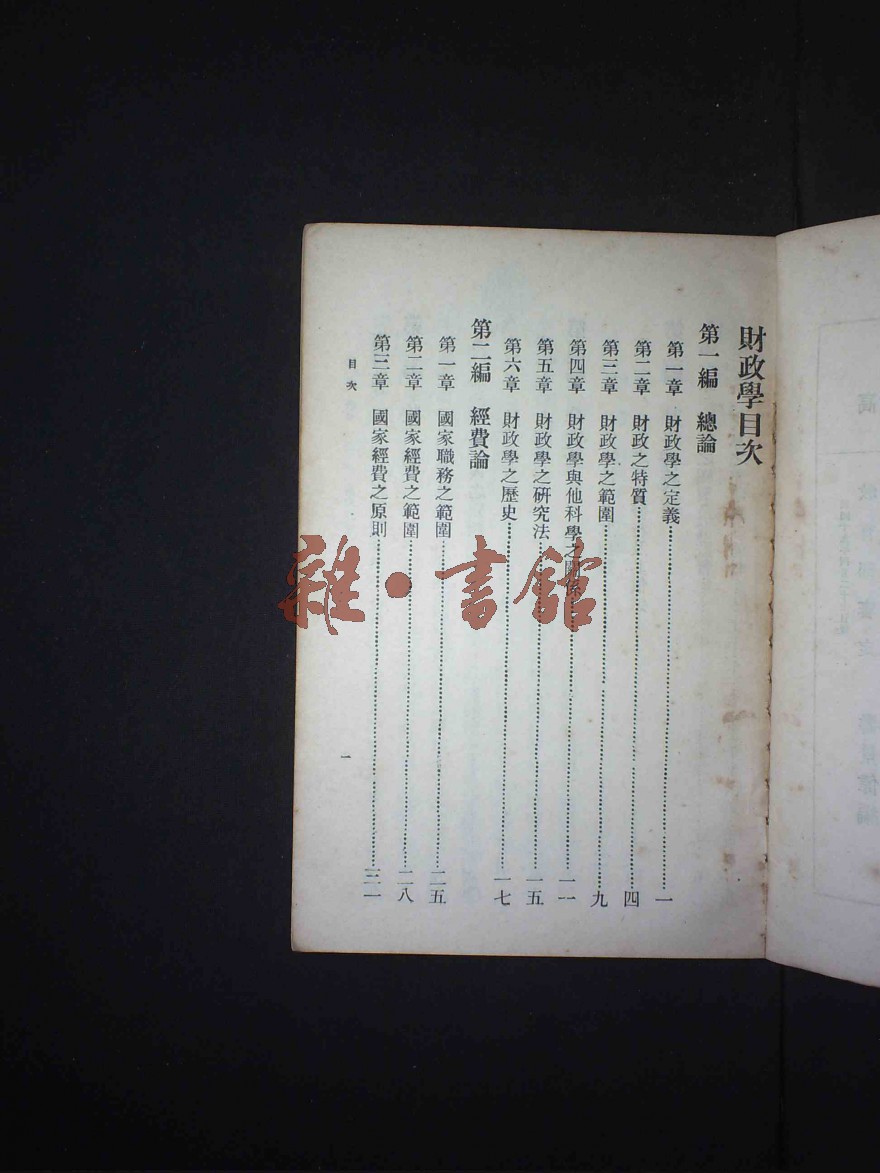 財政學目次
第一編 總論
第一章 財政學之定義……一
第二章 財政之特質……四
第三章 財政學之範圍……九
第四章 財政學與他科學之關係……一一
第五章 財政學之研究法……一五
第六章 財政學之歷史……一七
第二編 經費論
第一章 國家職務之範圍……二五
第二章 國家經費之範圍……二八
第三章 國家經費之原則……三一
目次
一
雜·書館